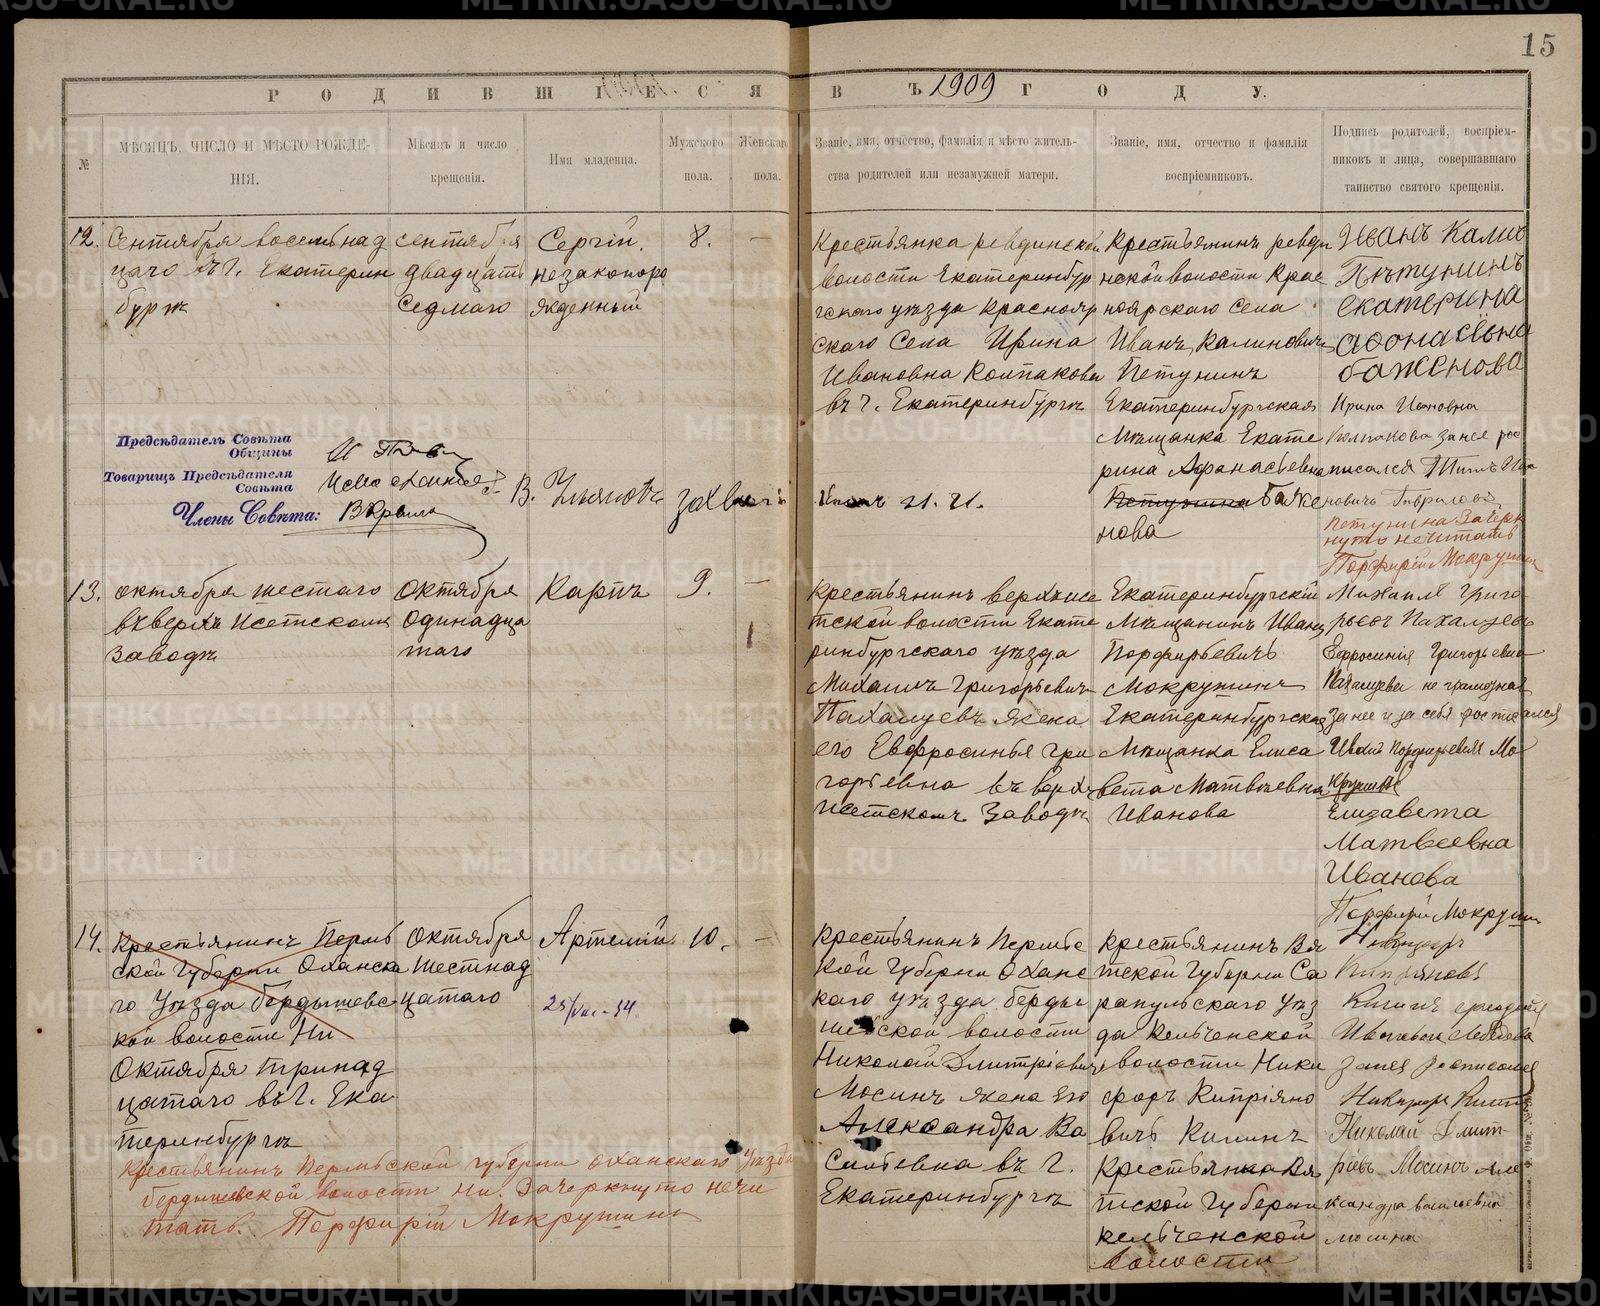 15
РОДИВШІЕСЯ ВЪ 1909 ГОДУ.
№
МѢСЯЦЪ, ЧИСЛО И МѢСТО РОЖДЕ-
НІЯ.
Мѣсяцъ и число
крещенія.
Имя младенца.
Мужского
пола.
Женскаго
пола.
Званіе, имя, отчество, фамилія и мѣсто житель-
ства родителей или незамужней матери.
Званіе, имя, отчество и фамилія
воспріемниковъ.
Подпись родителей, воспріем-
никовъ и лица, совершавшаго
таинство святого крещенія.
12.
Сентября восемьнад
цаго въ г. Екатерин
бургѣ
сентября
двадцать
седмаго
Сергій.
незаконоро
жденный
8.
—
Крестьянка ревдинской
волости Екатеринбур
гскаго уѣзда Краснояр
скаго Села Ирина
Ивановна Колпакова
въ г. Екатеринбургѣ
Крестьянинъ ревди
нской волости Крас
ноярскаго Села
Иванъ Калиновичъ
Петунинъ
Екатеринбургская
Мѣщанка Екате
рина Афанасьевна
Петунина Баже
нова
Иванъ Калин
Пѣтунинъ
екатерина
афонасьевна
баженова
Ирина Ивановна
Колпакова за нея рос
писался
новичъ Гаврилов
Петунина Зачерк
нуто нечитать
Порфирій Мокрушин
Предсѣдатель Совѣта
Общины
Товарищъ Предсѣдателя
Совѣта
Члены Совѣта:
13.
октября шестаго
въ верхъ Исетскомъ
Заводѣ
Октября
Одинадца
таго
Карпъ
9.
—
Крестьянинъ верхъисе
тской волости Екате
ринбургскаго уѣзда
Михаилъ Григорьевичъ
Пахалуевъ жена
его Евфросинья Гри
горьевна въ верхъ
исетскомъ Заводѣ
Екатеринбургскій
Мѣщанинъ Иванъ
Порфирьевичъ
Мокрушинъ
Екатеринбургская
Мѣщанка Елиса
вета Матвѣевна
Иванова
Михаилъ Григо
рьевъ Пахалуевъ
Ефросинія Григорьевна
Пахалуева не грамотная
За нее и за себя росписался
Иванъ Порфирьевичъ Мо
крушинъ
Елизавета
Матвеевна
Иванова
Порфирій Мокрушин
14.
Крестьянинъ Пермь
ской Губерніи Оханска
го Уѣзда бердышевс
кой волости Ни
Октября тринад
цатаго въ г. Ека
теринбургѣ
Октября
Шестнад
цатаго
Артемій
10.
—
Крестьянинъ Пермьс
кой Губерніи Оханс
каго уѣзда берды
шевской волости
Николай Дмитріевичъ
Мосинъ жена его
Александра Ва
сильевна въ г.
Екатеринбургѣ
Крестьянинъ Вя
тской Губерніи Са
рапульскаго Уѣз
да Кельченской
волости Ники
форъ Кипріяно
вичъ Килинъ
Крестьянка Вя
тской Губерніи
кельченской
волости
Никифоръ
Кипріяновъ
Килинъ
Николай Дмит-
ріевъ Мосинъ Але
ксандра васильевна
мосина
Крестьянинъ Пермьской губерніи Оханскаго Уѣзда
бердышевской волости Ни. Зачеркнуто нечи
тать. Порфирій Мокрушинъ